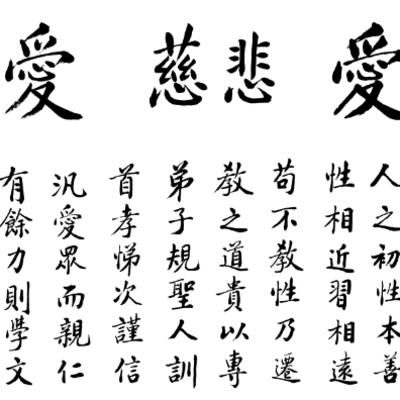 愛 慈悲 愛
人之初性本善
性相近習相遠
苟不教性乃遷
教之道貴以專
弟子規聖人訓
首孝悌次謹信
汎愛眾而親仁
有餘力則學文